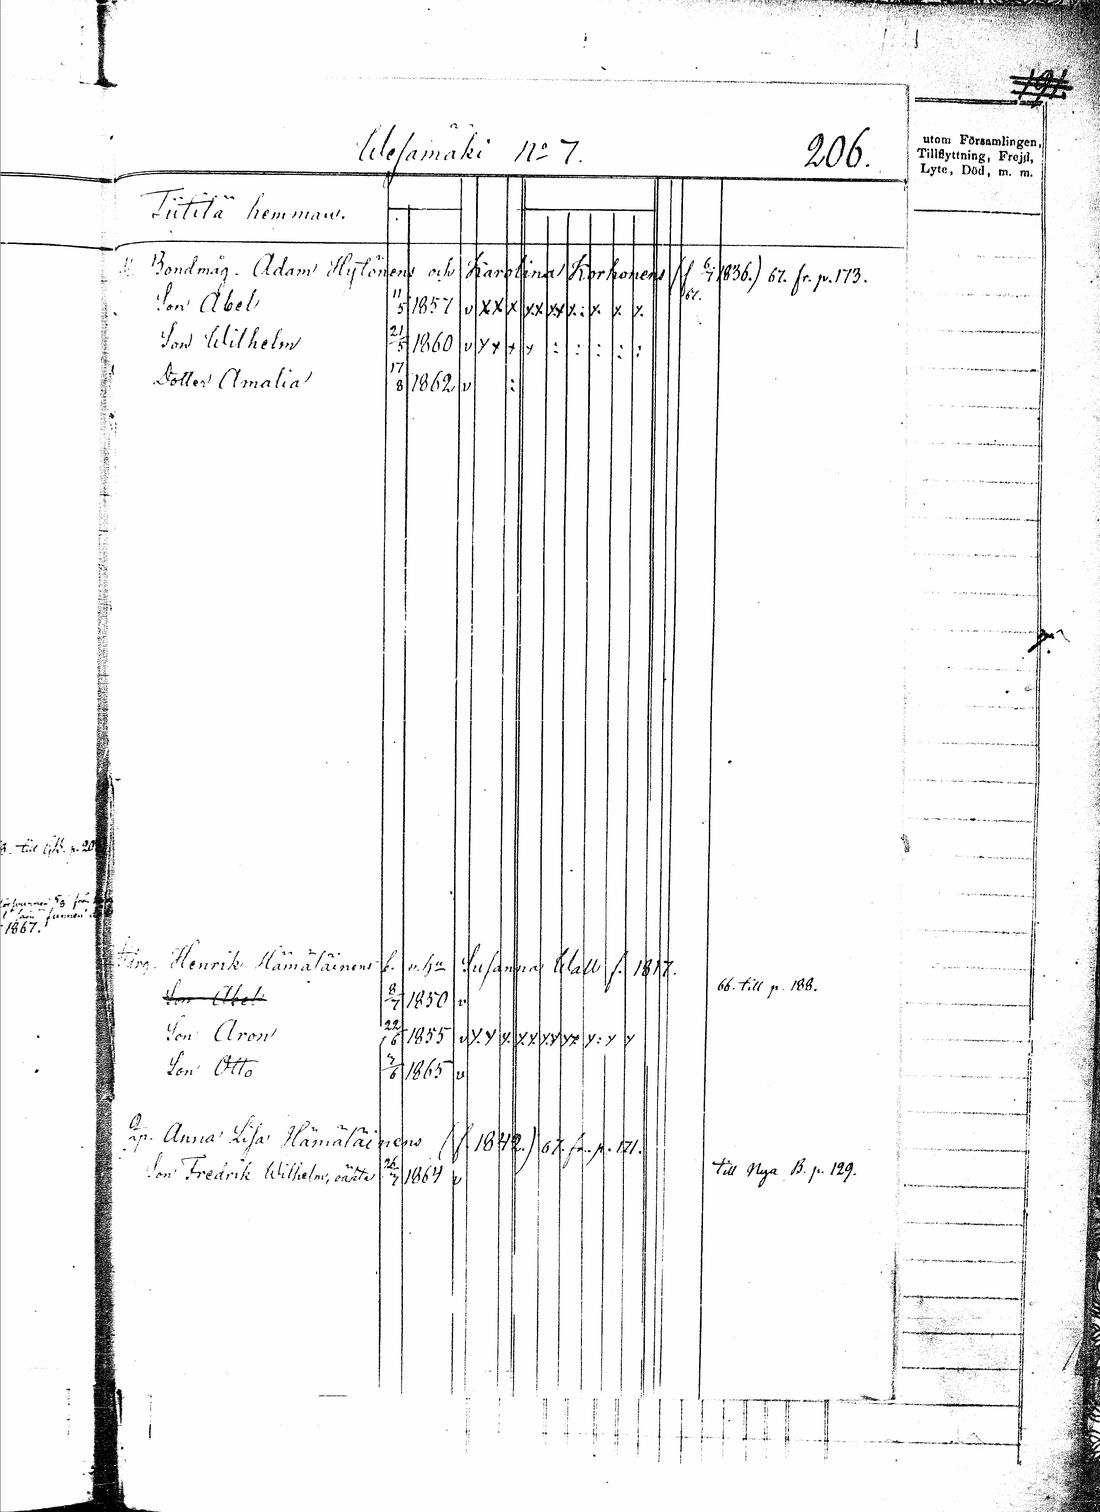 191.
utom Församlingen,
Tillflyttning, Frejd,
Lyte, Död, m. m.
Wesamäki No 7. 206.
Tiitilä hemman.
Bondmåg. Adam Hytönens och Karolina Korhonens (f. 6/7 1836.) 67. fr. p. 173.
67.
Son Abel 11/5 1857 v x x x x x x x x : x x x
Son Wilhelm 21/5 1860 v x x x x : : : : :
Dotter Amalia 17/8 1862 v :
till p. 20
1867.
Henrik Hämäläinens Susanna Wall f. 1817.
Son Abel 8/7 1850 v 66. till p. 188.
Son Aron 22/6 1855 v x x x x x x x x x x : x x
Son Otto 7/6 1865 v
Anna Lisa Hämäläinens (f. 1842.) 67. fr. p. 171.
Son Fredrik Wilhelm, oäkta 26/7 1864 v till Nya B. p. 129.